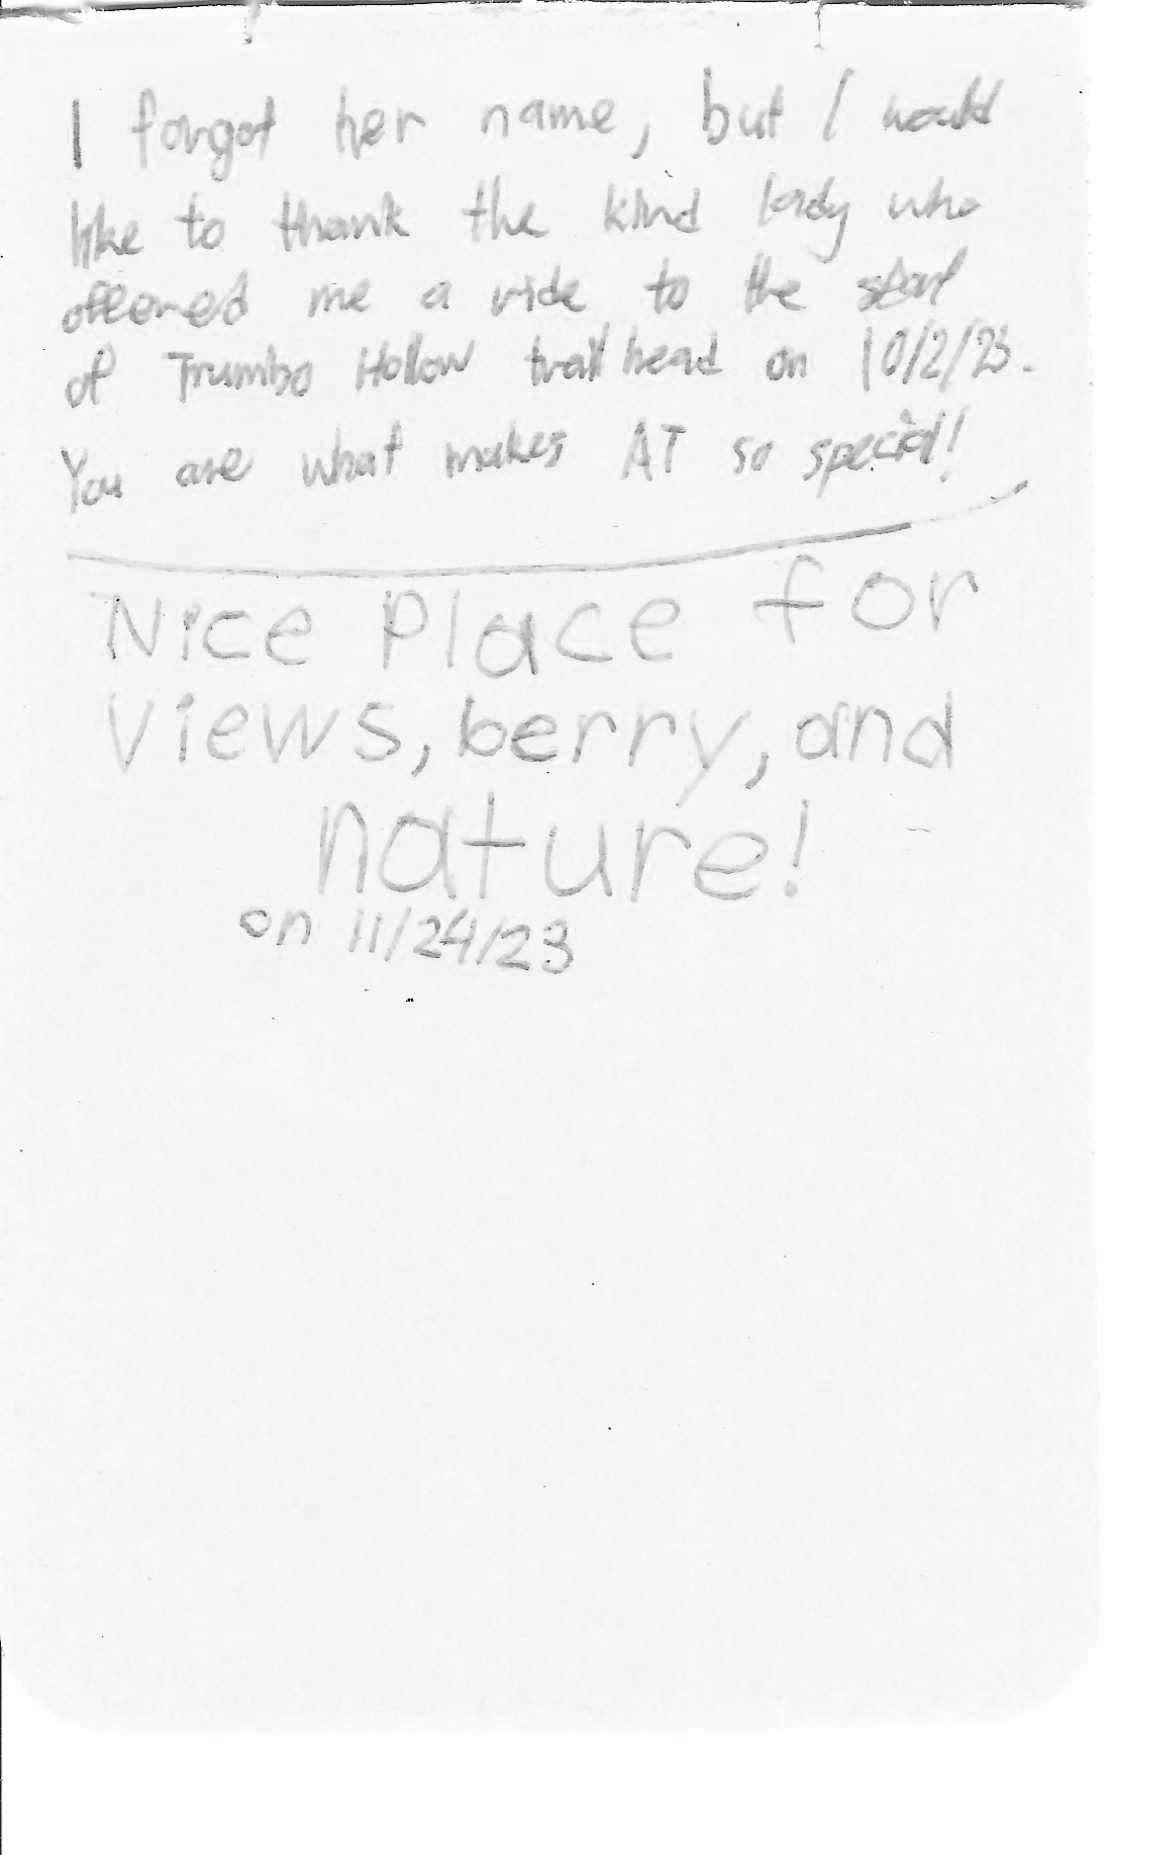 I forgot her name, but I would
like to thank the kind lady who
offered me a ride to the start
of Trumbo Hollow trail head on 10/2/23.
You are what makes AT so special!
Nice Place for
views, berry, and
nature!
on 11/24/23